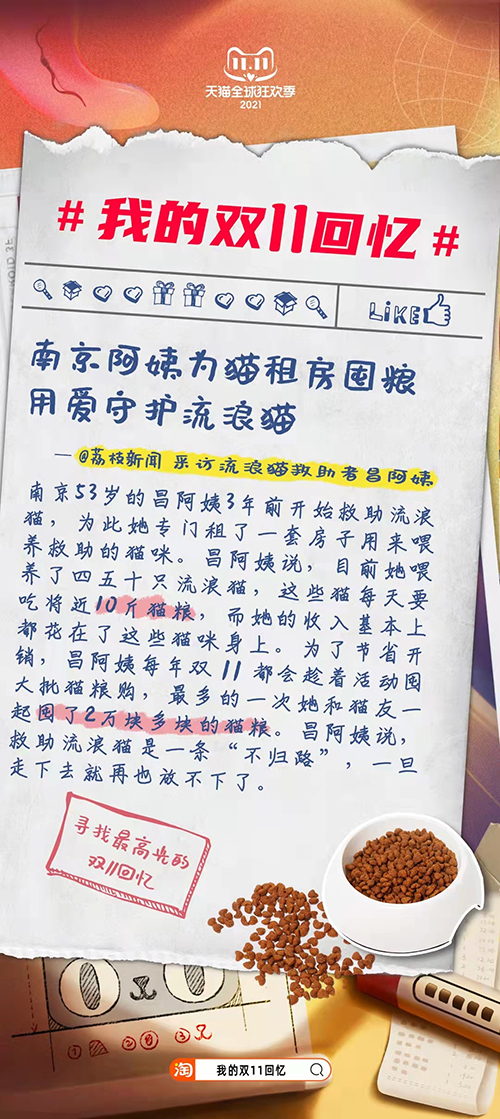 11.11
天猫全球狂欢季
2021
#我的双11回忆#
LIKE
南京阿姨为猫租房囤粮
用爱守护流浪猫
—@荔枝新闻 采访流浪猫救助者昌阿姨
南京53岁的昌阿姨3年前开始救助流浪
猫，为此她专门租了一套房子用来喂
养救助的猫咪。昌阿姨说，目前她喂
养了四五十只流浪猫，这些猫每天要
吃将近10斤猫粮，而她的收入基本上
都花在了这些猫咪身上。为了节省开
销，昌阿姨每年双11都会趁着活动囤
大批猫粮购，最多的一次她和猫友一
起囤了2万块多块的猫粮。昌阿姨说，
救助流浪猫是一条“不归路”，一旦
走下去就再也放不下了。
寻找最高光的
双11回忆
淘 我的双11回忆